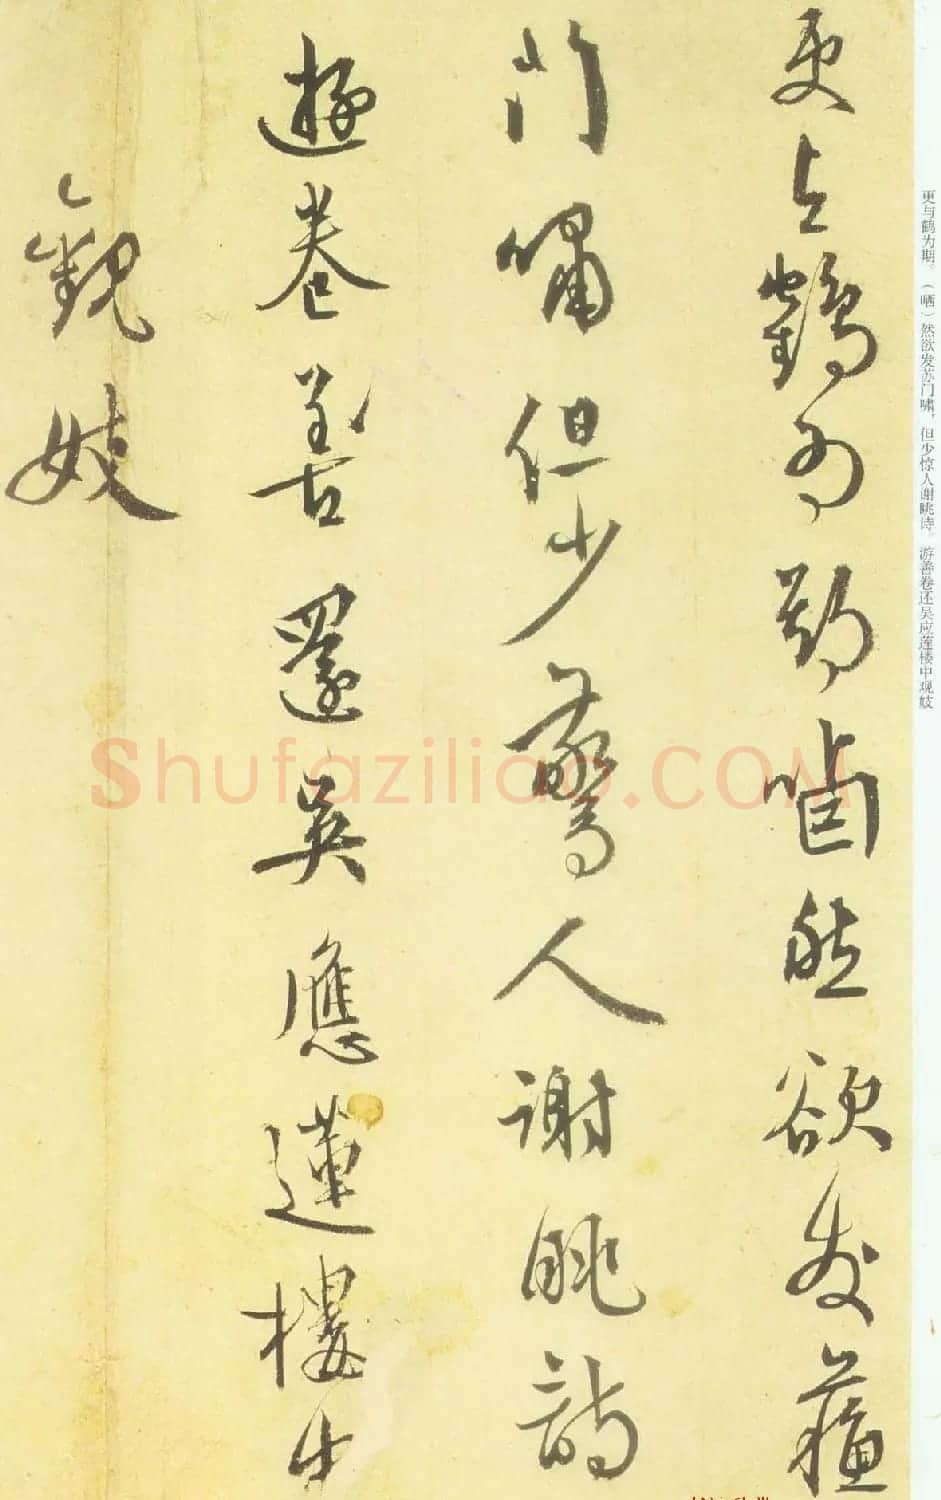 更与鹤为期。（晒）然欲发苏门啸，但少惊人谢眺诗。游善卷还吴应莲楼中观妓
更与鶴为期然欲发蘇
门嘯但少驚人谢眺詩
遊卷善還吳應蓮樓中
觀妓
Shufaziliao.COM